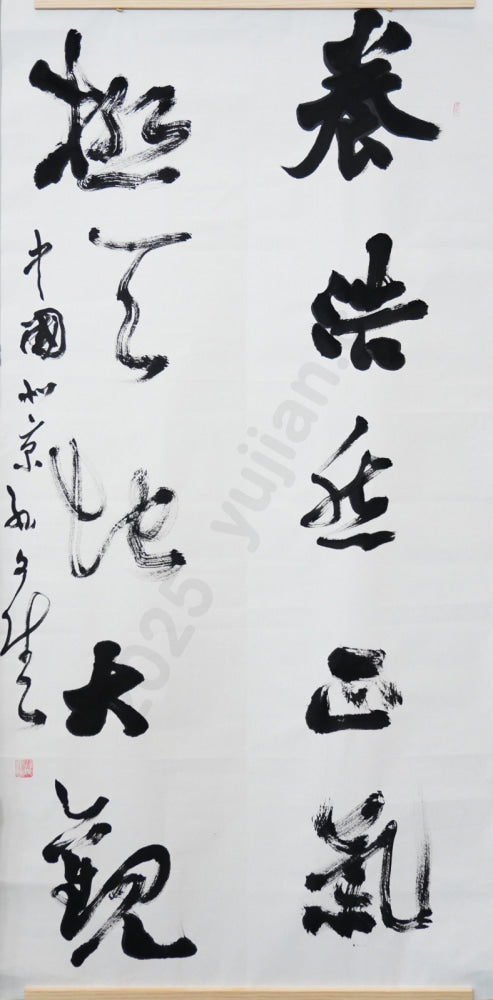 養浩然正氣
極天地大觀
中國北京孫文生
2025 yujian.